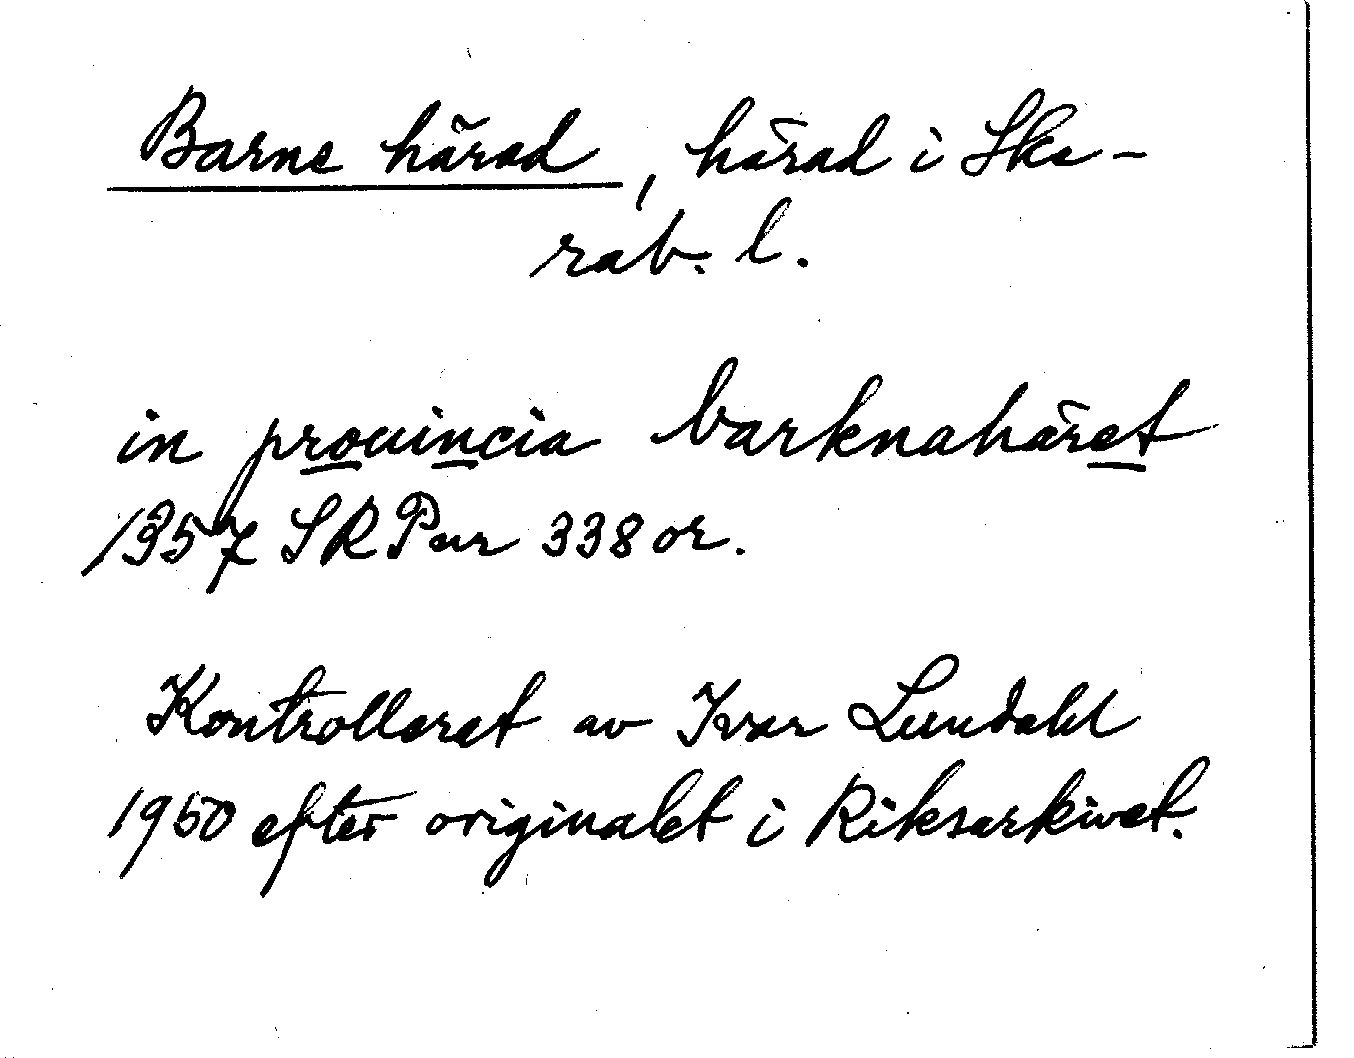 Barne härad, härad i Ska-
rab. l.
in prouincia barknahäret
1357 SRP nr 338 or.
Kontrollerat av Ivar Lundahl
1950 efter originalet i Riksarkivet.